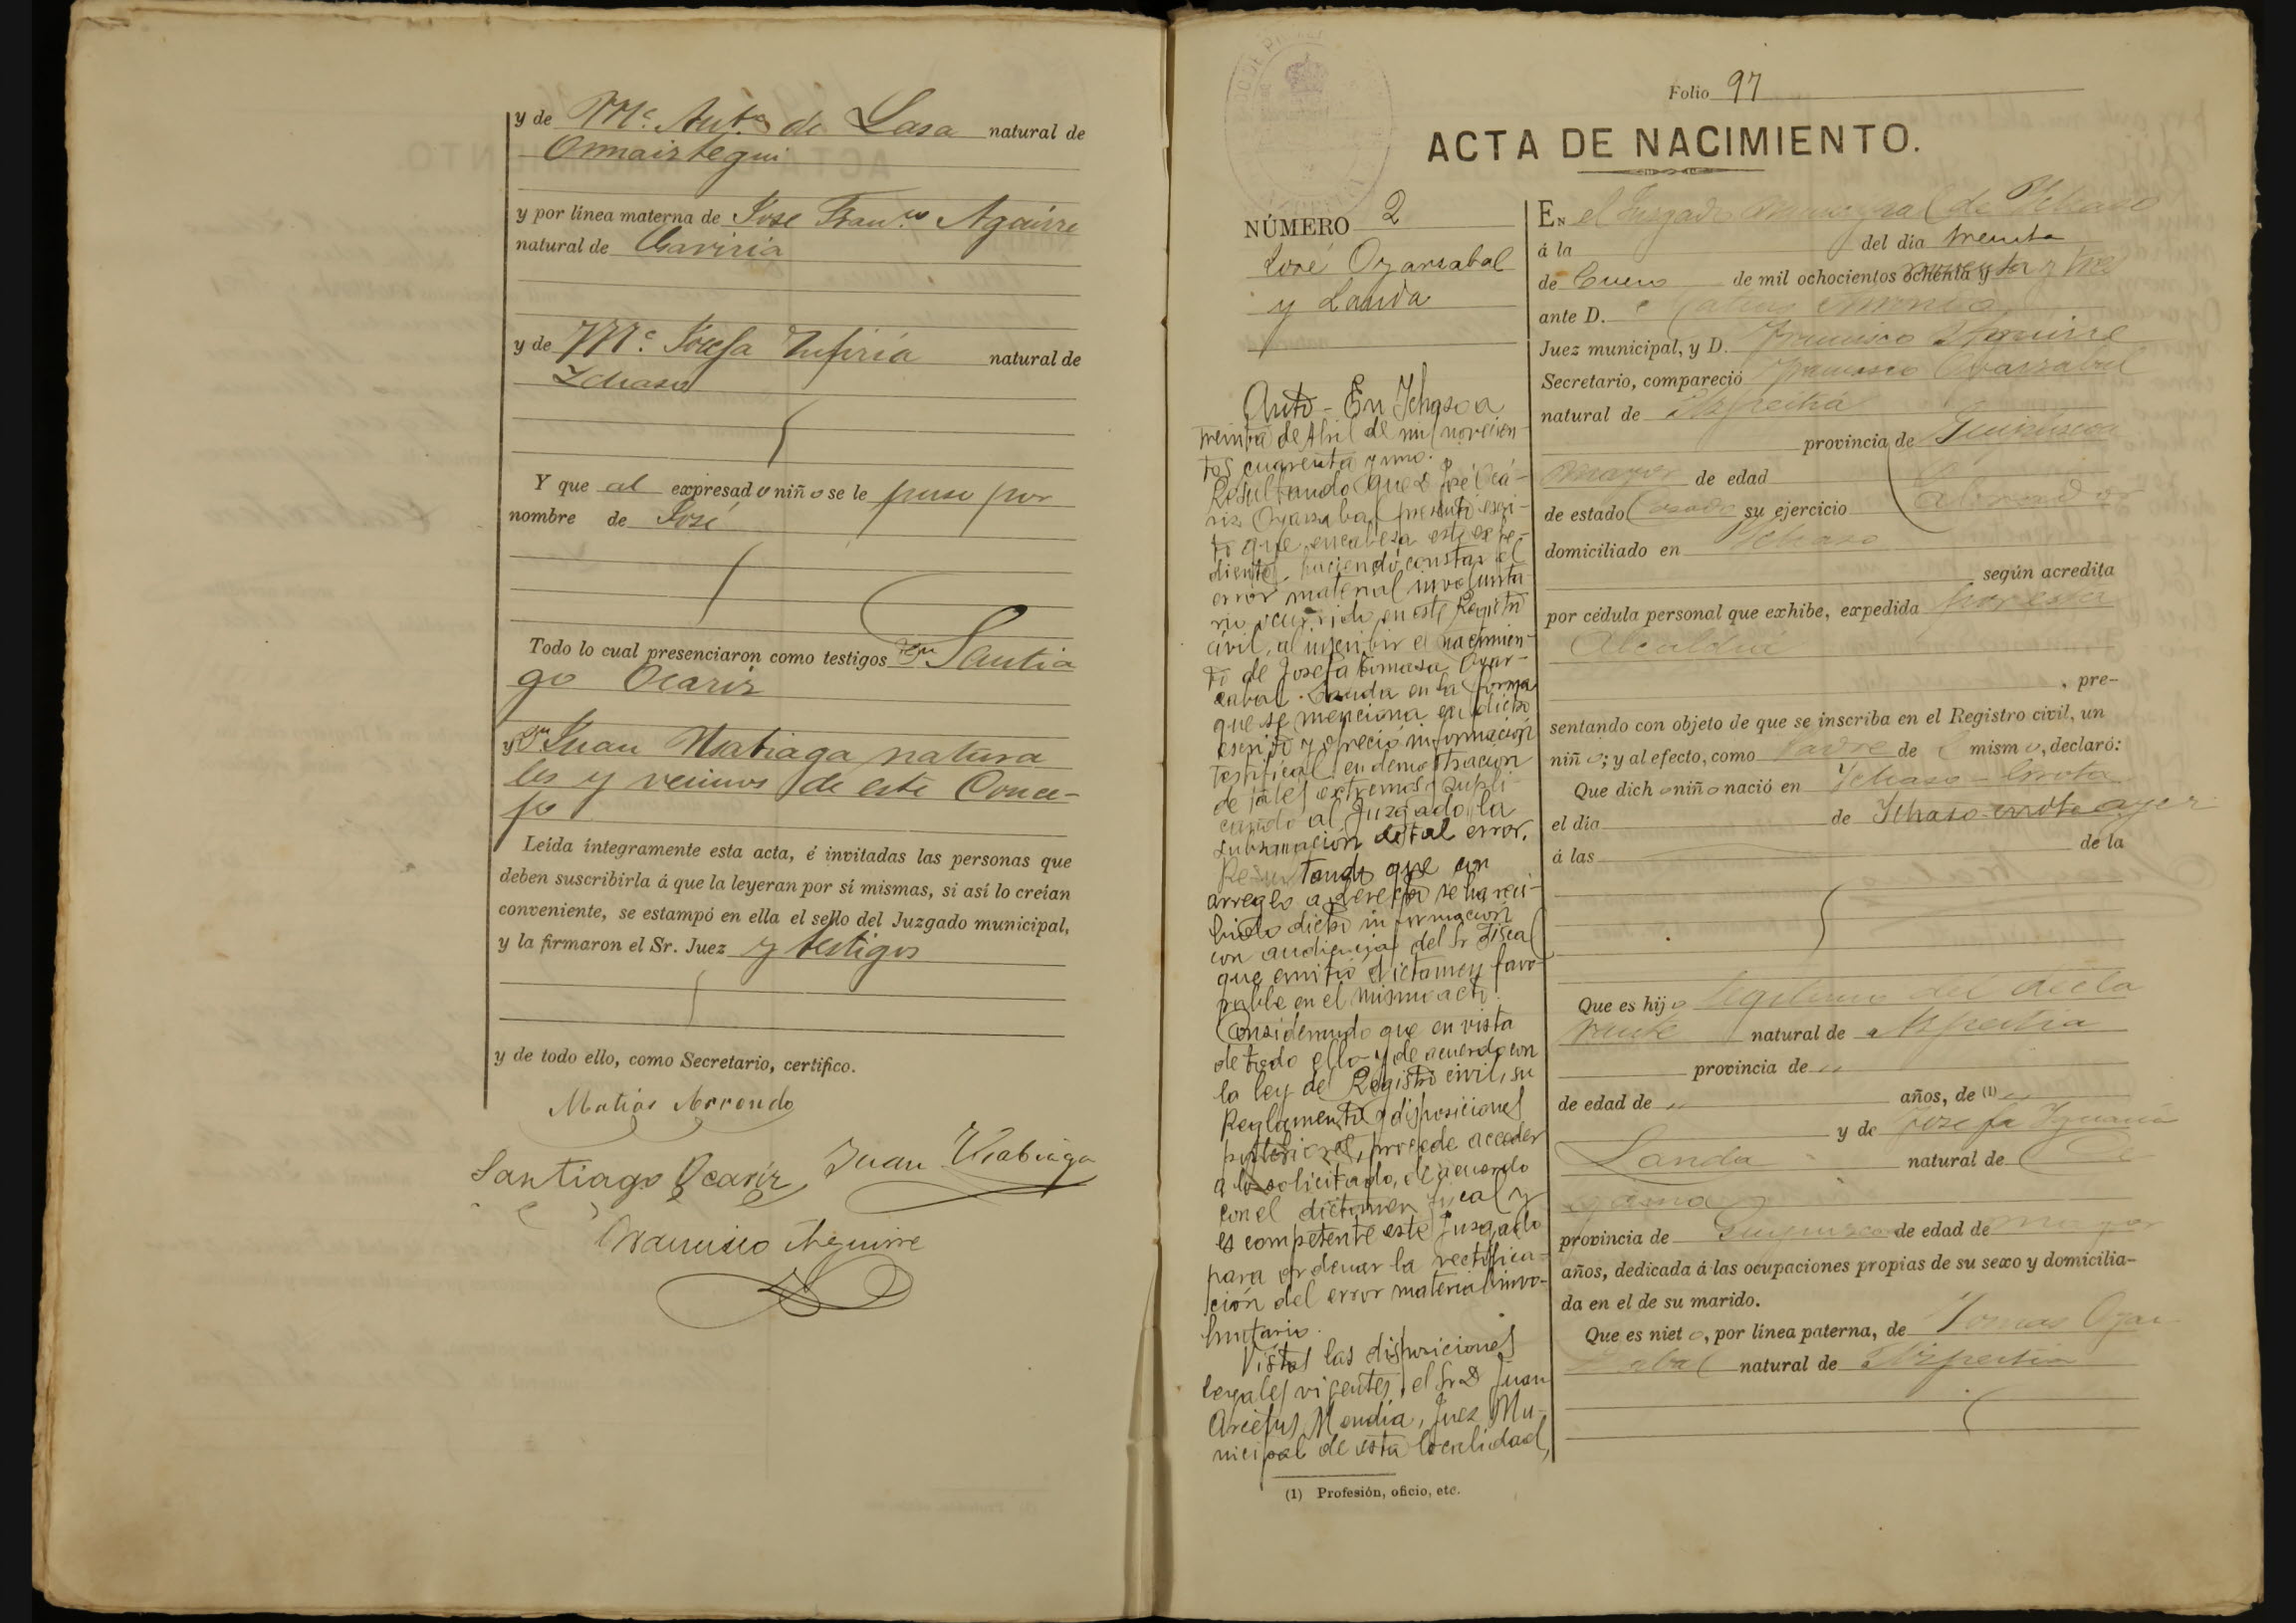 y de Mª. Antª de Lasa natural de
Ormaiztegui
y por línea materna de Jose Franco Aguirre
natural de Gaviria
y de Mª. Josefa natural de
Ichaso
Y que al expresado niño se le puso por
nombre de José
Todo lo cual presenciaron como testigos Dn Santia
go Ocariz
y Dn Juan Usabiaga natura
les y vecinos de este Conce-
jo
Leída íntegramente esta acta, é invitadas las personas que
deben suscribirla á que la leyeran por sí mismas, si así lo creían
conveniente, se estampó en ella el sello del Juzgado municipal,
y la firmaron el Sr. Juez y testigos
y de todo ello, como Secretario, certifico.
Matias Arrondo
Santiago Ocariz Juan Usabiaga
Francisco Aguirre
Folio 97
ACTA DE NACIMIENTO.
NÚMERO 2
José Oyarzabal
y Landa
Auto - En Ichaso a
treinta de Abril de mil novecien-
tos cuarenta y uno.
Resultando que D José
Oyarzabal presentó escri-
to que encabeza este expe-
diente, haciendo constar el
error material involunta-
rio ocurrido en este Registro
civil, al inscribir el nacimien-
to de Josefa Tomasa Oyar-
zabal Landa en la forma
que se menciona en dicho
escrito y ofreció información
testifical en demostración
de tales extremos, supli-
cando al Juzgado la
subsanación de tal error.
Resultando que con
arreglo a derecho se ha reci-
bido dicha información
con audiencia del Sr Fiscal
que emitió dictamen favo-
rable en el mismo acto.
Considerando que en vista
de todo ello y de acuerdo con
la ley del Registro civil, su
Reglamento y disposiciones
posteriores, procede acceder
a lo solicitado, de acuerdo
con el dictamen fiscal y
es competente este Juzgado
para ordenar la rectifica-
ción del error material invo-
luntario.
Vistas las disposiciones
legales vigentes, el Sr D Juan
Mendia, Juez Mu-
nicipal de esta localidad,
(1) Profesión, oficio, etc.
En el Juzgado municipal de Ichaso
á la del dia treinta
de Enero de mil ochocientos ochenta y noventa y tres
ante D. Matias Arrondo
Juez municipal, y D. Francisco Aguirre
Secretario, compareció Francisco Oyarzabal
natural de Azpeitia
provincia de Guipúzcoa
mayor de edad
de estado Casado su ejercicio Labrador
domiciliado en Ichaso
según acredita
por cédula personal que exhibe, expedida por esta
Alcaldia
, pre-
sentando con objeto de que se inscriba en el Registro civil, un
niño; y al efecto, como Padre del mismo, declaró:
Que dicho niño nació en Ichaso-Errota
el dia de Ichaso-errota ayer
á las de la
Que es hijo legitimo del decla
rante natural de Azpeitia
provincia de "
de edad de " años, de (1) "
y de Josefa Ignacia
Landa natural de Ce
gama
provincia de Guipuzcoa de edad de mayor
años, dedicada á las ocupaciones propias de su sexo y domicilia-
da en el de su marido.
Que es nieto, por línea paterna, de Tomas Oyar
zabal natural de Azpeitia